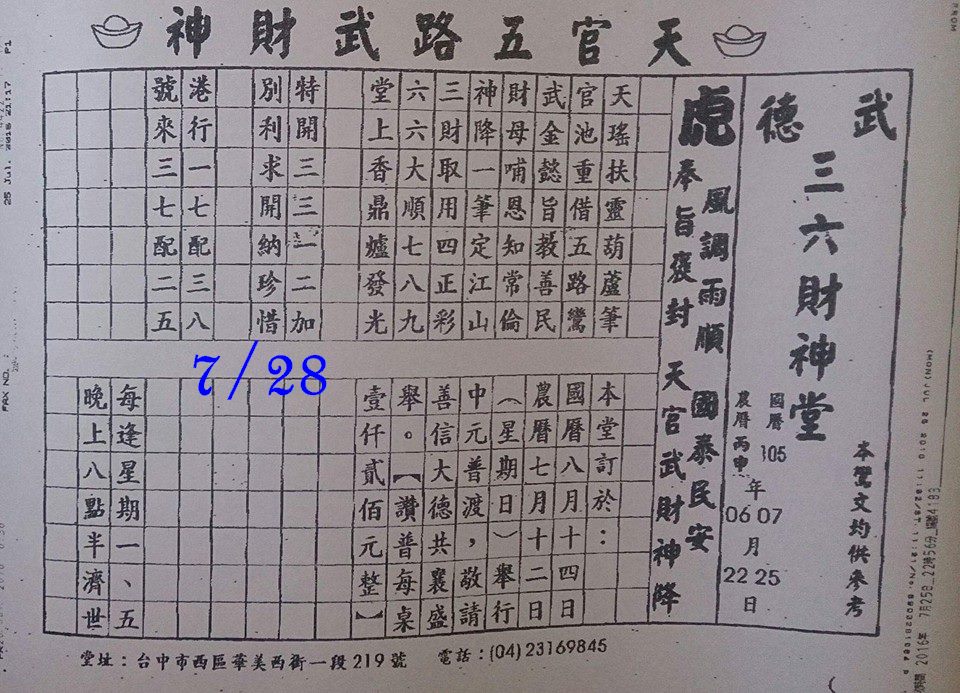 天官五路武財神
武德
三六財神堂
本鸞文均供參考
國曆 105 年 07 月 25 日
農曆丙申 年 06 月 22 日
虎
風調雨順 國泰民安
奉旨褒封 天官武財神降
天瑤扶靈葫蘆筆
官池重借五路鸞
武金懿旨教善民
財母哺恩知常倫
神降一筆定江山
三財取用四正彩
六六大順七八九
堂上香鼎爐發光
特開三三一二加
別利求開納珍惜
港行一七配三八
號來三七配二五
7/28
本堂訂於：
國曆八月十四日
農曆七月十二日
（星期日）舉行
中元普渡，敬請
善信大德共襄盛
舉。【讚普每桌
壹仟貳佰元整】
每逢星期一、五
晚上八點半濟世
堂址：台中市西區華美西街一段219號 電話：(04)23169845
25 Jul. 2016 21:17 P1
FAX NO. :
2016年 7月25日 22時56分